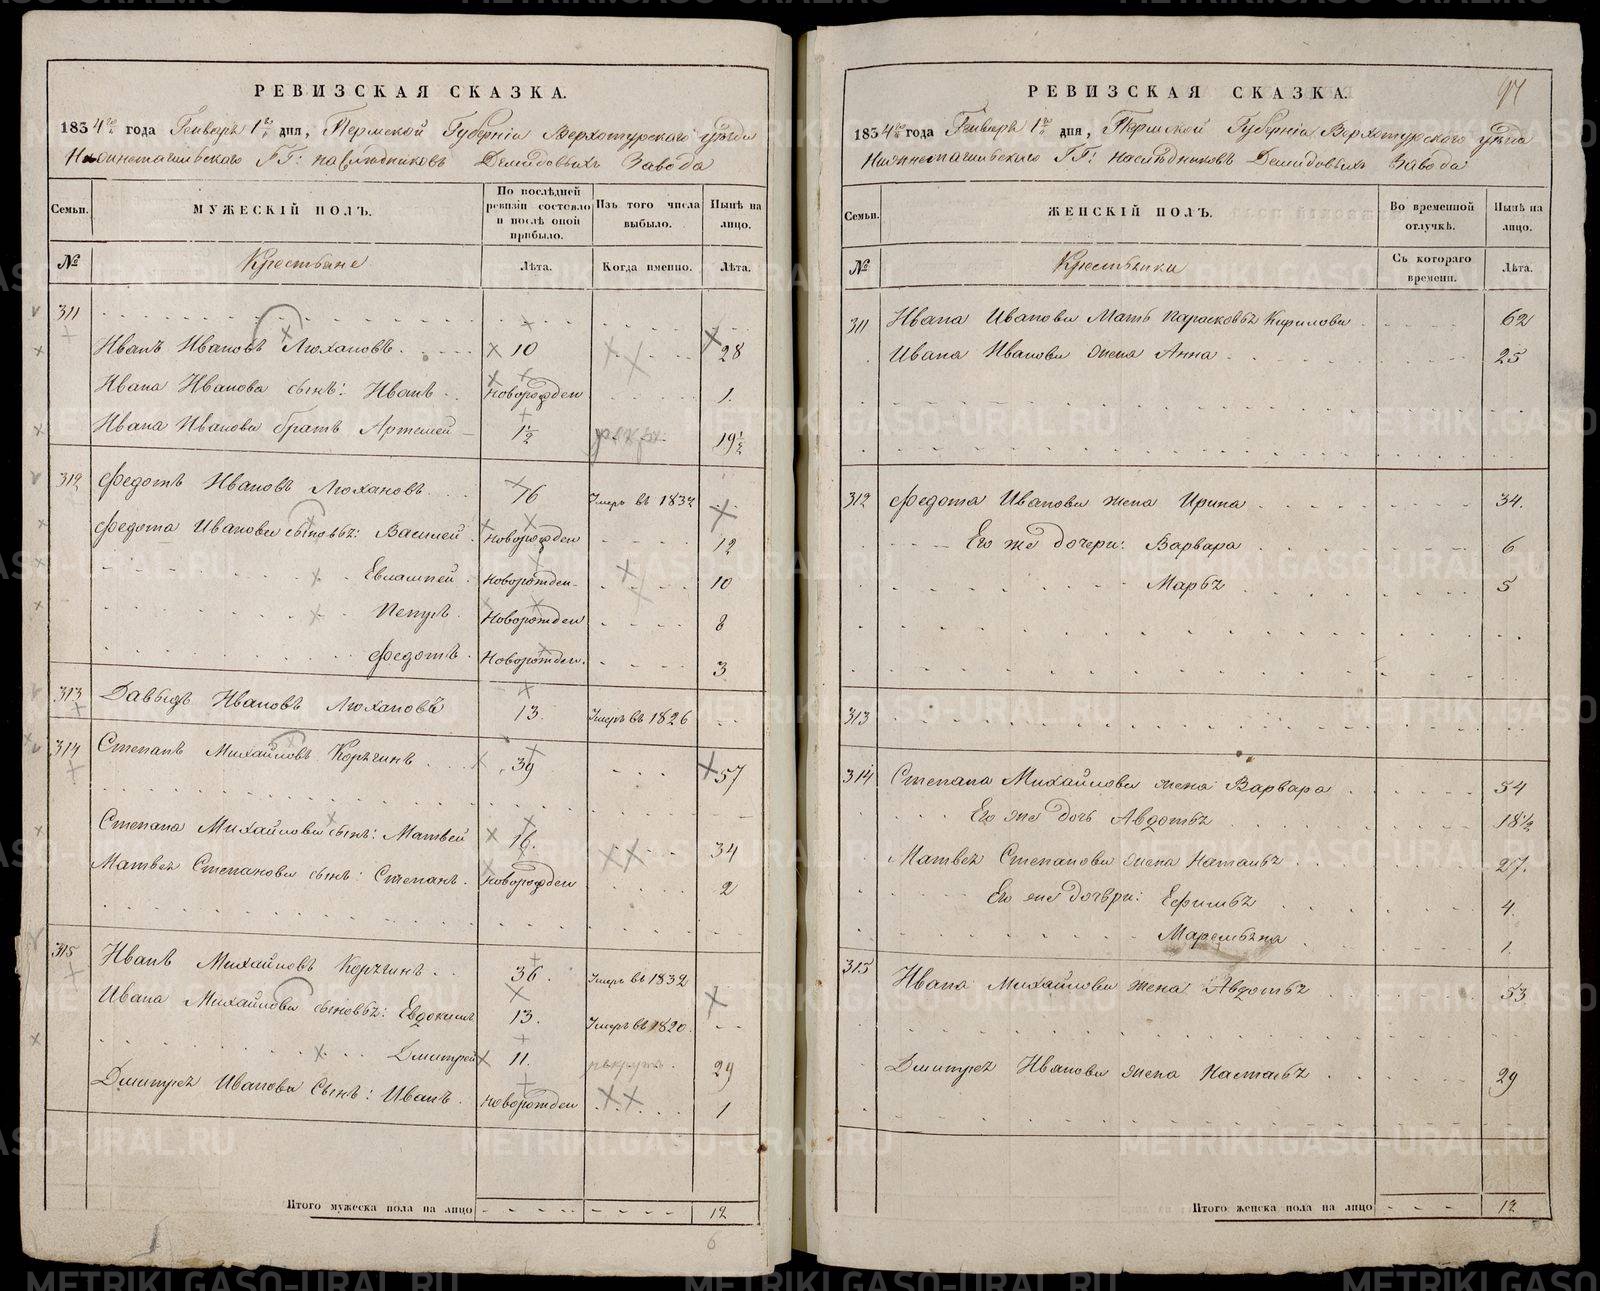 РЕВИЗСКАЯ СКАЗКА.
1834го года Генваря 1го дня, Пермской Губерніи Верхотурского уѣзда
Нижнетагильского ГГ: наслѣдниковъ Демидовыхъ Завода
Семьи.
МУЖЕСКІЙ ПОЛЪ.
По послѣдней ревизіи состояло и послѣ оной прибыло.
Изъ того числа выбыло.
Нынѣ на лицо.
№
Крестьяне
Лѣта.
Когда именно.
Лѣта.
311
Иванъ Ивановъ Люхановъ. 10 28
Ивана Иванова сынъ: Иванъ новорожден 1.
Ивана Иванова братъ Артемей 1½ 19½
312 Федотъ Ивановъ Люхановъ 16 Умеръ въ 1832
Федота Иванова сыновья: Василей новорожден 12
Евлампей новорожден 10
новорожден 8
Федотъ новорожден. 3
313 Давыдъ Ивановъ Люхановъ 13. Умеръ въ 1826
314 Степанъ Михайловъ Корягинъ 39 57
Степана Михайлова сынъ: Матвей 16. 34
Матвея Степанова сынъ: Степанъ. новорожден 2
315 Иванъ Михайловъ Корягинъ 36. Умеръ въ 1832
Ивана Михайлова сыновья: Евдокимъ 13. Умеръ въ 1820.
Дмитрей 11. рекрутъ. 29
Дмитрея Иванова Сынъ: Иванъ новорожден 1
Итого мужеска пола на лицо 12
6
97
РЕВИЗСКАЯ СКАЗКА.
1834го года Генваря 1го дня, Пермской Губерніи Верхотурского уѣзда
Нижнетагильского ГГ: наслѣдниковъ Демидовыхъ Завода
Семьи.
ЖЕНСКІЙ ПОЛЪ.
Во временной отлучкѣ.
Нынѣ на лицо.
№
Крестьянки
Съ котораго времени.
Лѣта.
311 Ивана Иванова Мать Парасковья Кирилова 62
Ивана Иванова жена Анна 25
312 Федота Иванова жена Ирина 34.
Его же дочери: Варвара 6
Марья 5
313
314 Степана Михайлова жена Варвара 54
Его же дочь Авдотья 18½
Матвея Степанова жена Наталья 27.
Его же дочери: Ефимья 4.
Маремьяна 1.
315 Ивана Михайлова жена Авдотья 53
Дмитрея Иванова жена Настасья 29
Итого женска пола на лицо 12
METRIKI.GASO-URAL.RU